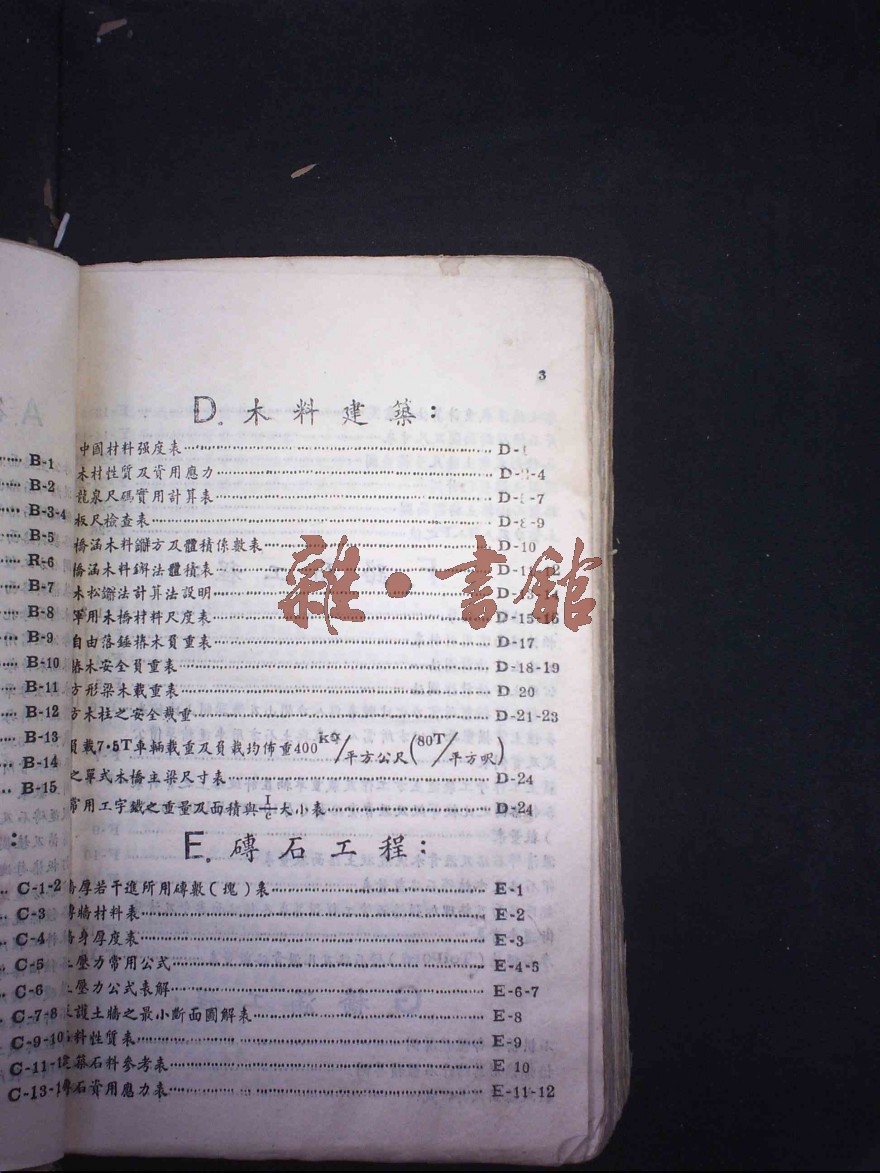 B-1
B-2
B-3-4
B-5
B-6
B-7
B-8
B-9
B-10
B-11
B-12
B-13
B-14
B-15
:
C-1-2
C-3
C-4
C-5
C-6
C-7-8
C-9-10
C-11-12
C-13-1
3
D. 木料建築:
中國材料强度表 D-1
木材性質及資用應力 D-2-4
龍泉尺碼實用計算表 D-5-7
板尺檢查表 D-8-9
橋涵木料方及體積係數表 D-10
橋涵木料法體積表 D-11-12
木松法計算法說明 D-13-14
軍用木橋材料尺度表 D-15-16
自由落錘樁木負重表 D-17
樁木安全負重表 D-18-19
方形梁木載重表 D 20
方木柱之安全載重 D-21-23
負載7.5T車輛載重及負載均佈重400kg/平方公尺(80T/平方呎)
之單式木橋主梁尺寸表 D-24
常用工字鐵之重量及面積與I/c大小表 D-24
E. 磚石工程:
厚若干進所用磚數(塊)表 E-1
牆材料表 E-2
身厚度表 E-3
壓力常用公式 E-4-5
壓力公式表解 E-6-7
護土牆之最小斷面圖解表 E-8
料性質表 E-9
築石料參考表 E 10
石資用應力表 E-11-12
雜·書館